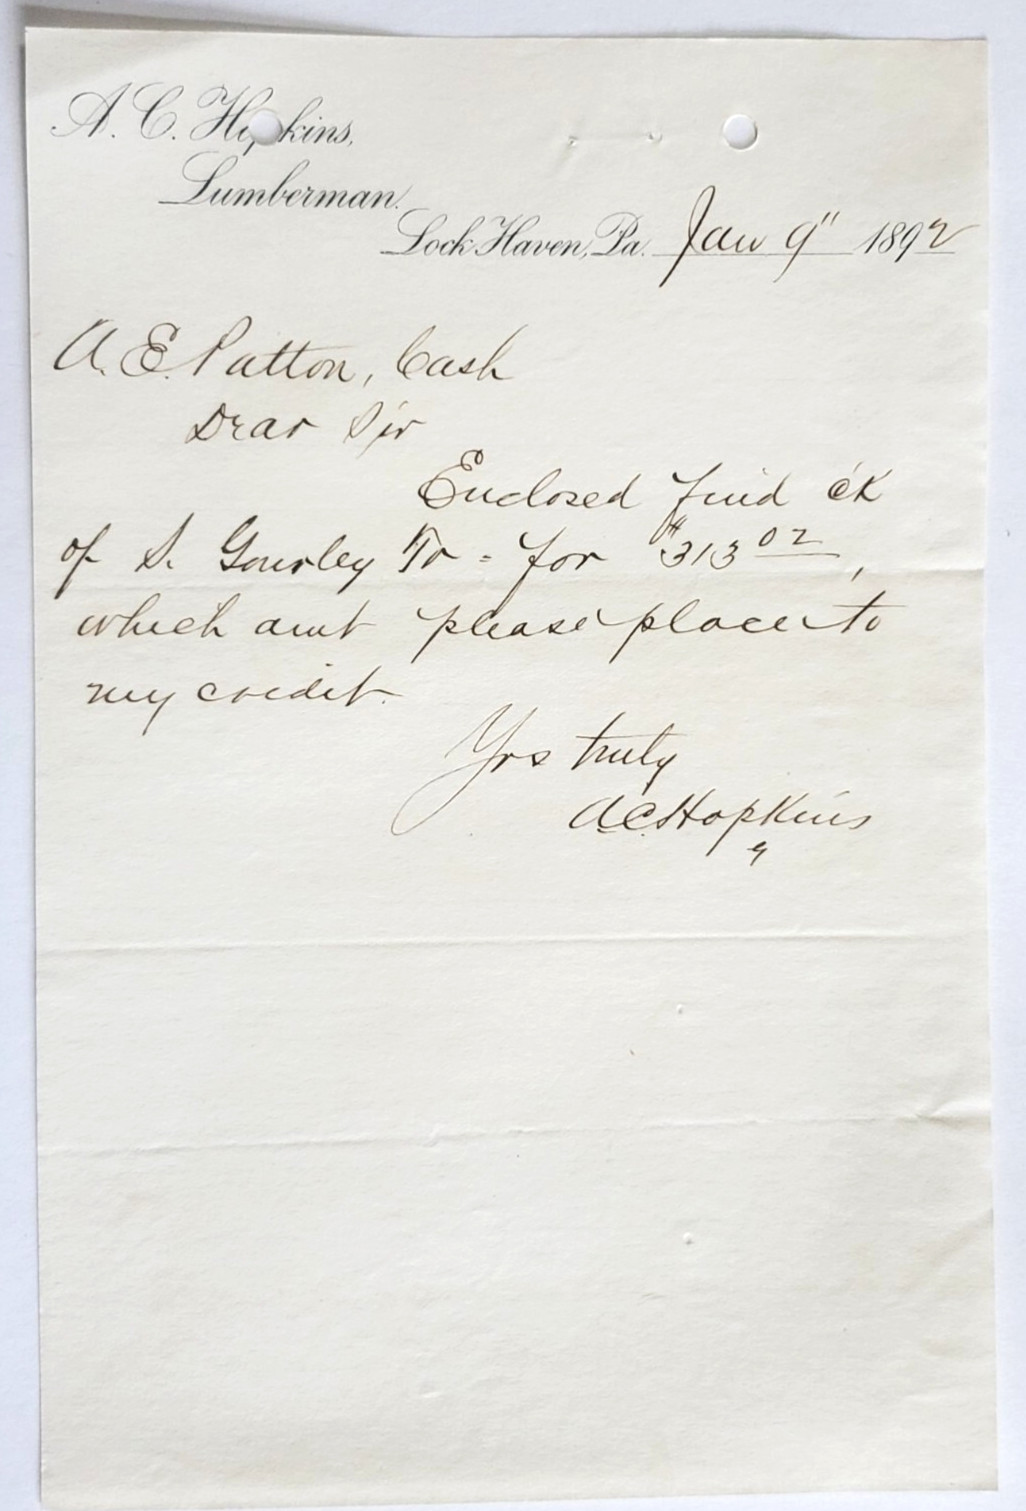 A. C. Hopkins,
Lumberman.
Lock Haven, Pa. Jan 9" 1892
A. E. Patton, Cash
Dear Sir
Enclosed find ck
of S. Gourley Tr - for $313 02,
which amt please place to
my credit.
Yrs truly
A.C. Hopkins